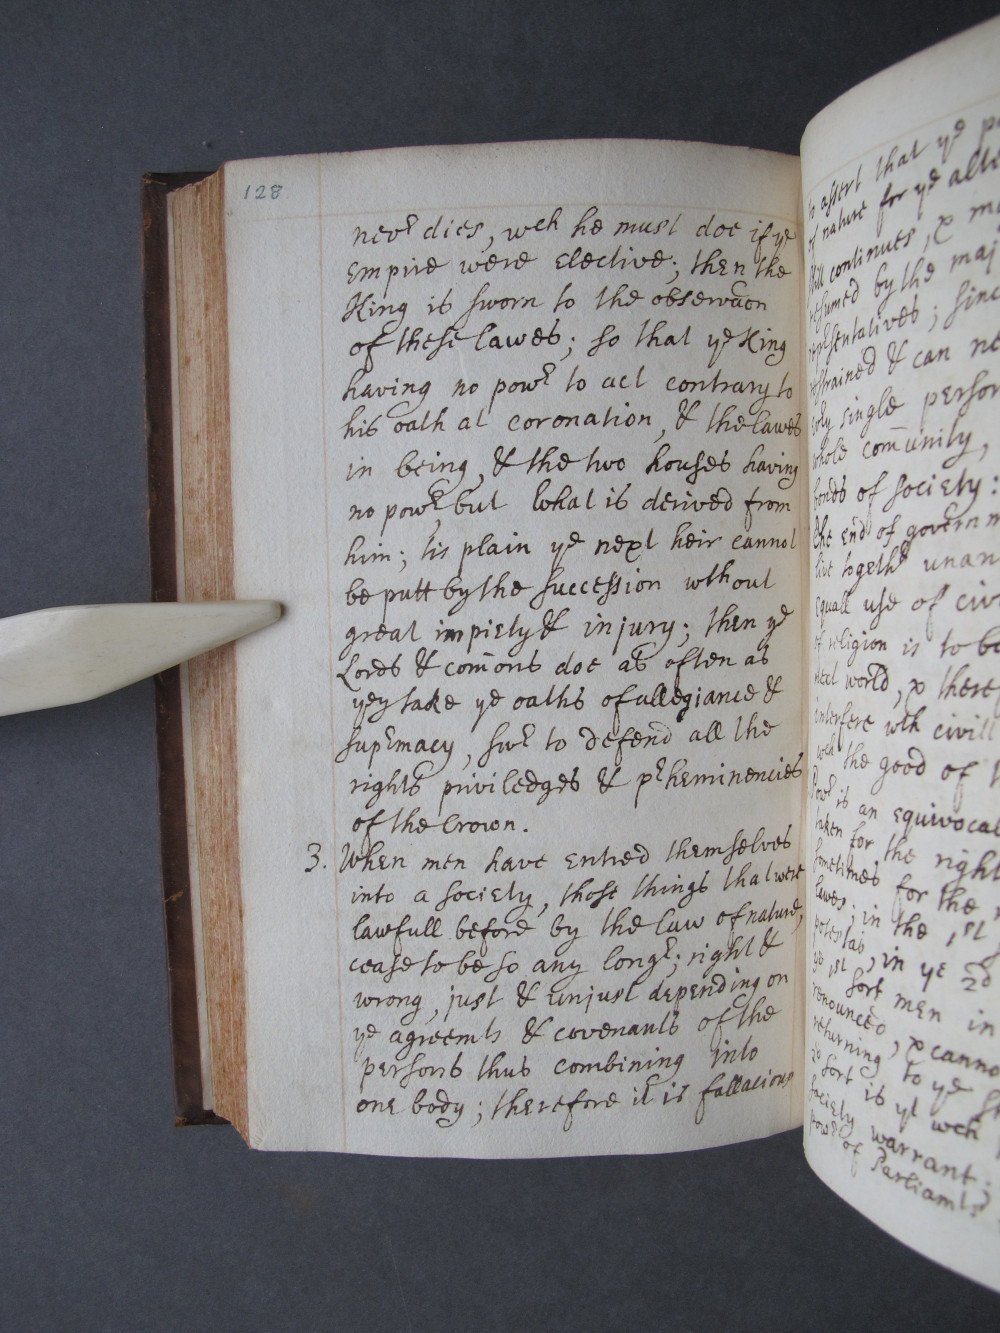 128
never dies, wch he must doe if ye
Empire were Elective; then the
King is sworn to the observacon
of these lawes; so that ye King
having no powr to act contrary to
his oath at coronation, & the lawes
in being, & the two houses having
no powr, but what is derived from
him; tis plain ye next heir cannot
be putt by the succession wthout
great impiety & injury; then ye
Lords & comons doe as often as
yey take ye oaths of allegiance &
suprmacy, swr to defend all the
rights priviledges & prheminencies
of the Crown.
3. When men have Entred themselves
into a society, those things that were
lawfull before by the law of nature,
cease to be so any longr; right &
wrong, just & unjust depending on
ye agreemts & covenants of the
persons thus combining into
one body; therefore it is fallacious
to assert that ye
of nature for ye
still continues, &
resumed by the
representatives;
restrained & can
only single
whole comunity,
bonds of society:
the End of
live togethr
Equall use of
of religion is to
world, & these
interfere wth civill
wch the good of
Powr is an Equivocal
taken for the right
sometimes for the
lawes; in the 1st
potestas, in ye 2d
ye 1st sort men in
renounced, & canno
returning to ye
2d sort is yt wch
society warrant:
powr of Parliamts